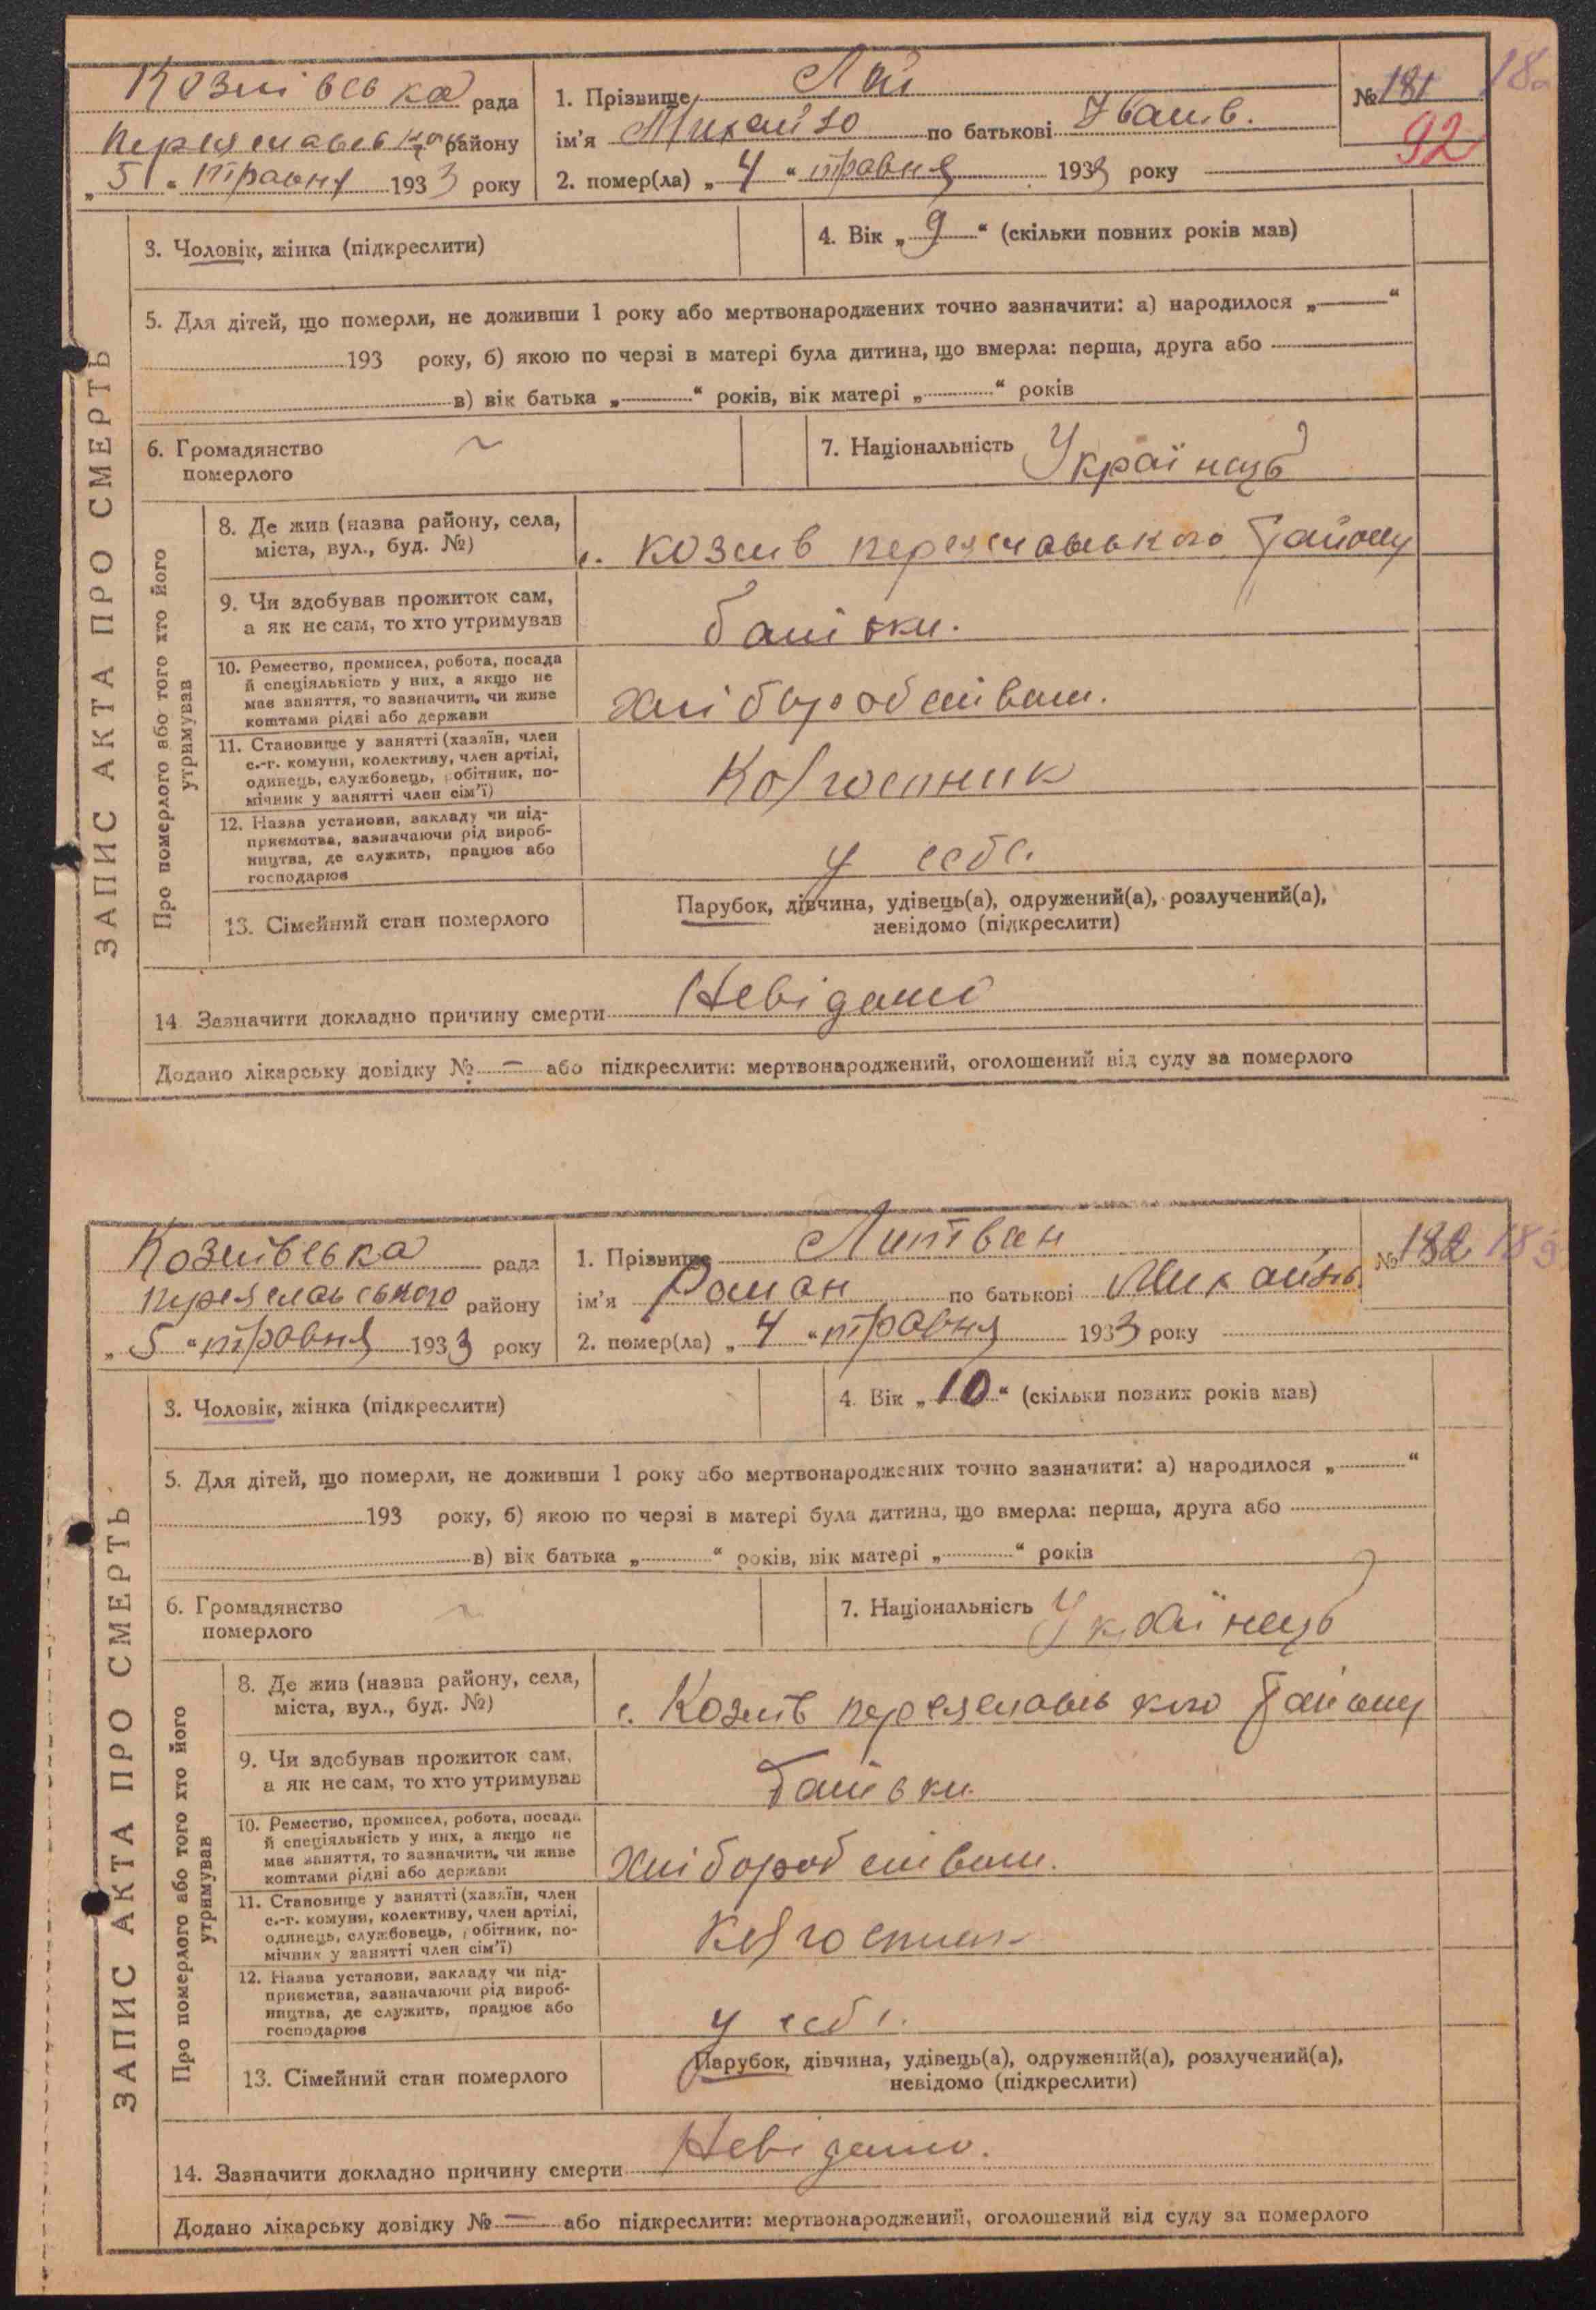 Козлівська рада
Переяславськ району
„5“ травня 1933 року
1. Прізвище Лай
ім'я Михайло по батькові Іванів.
2. помер(ла) „4“ травня 1933 року
№ 181
92
3. Чоловік, жінка (підкреслити)
4. Вік „9“ (скільки повних років мав)
5. Для дітей, що померли, не доживши 1 року або мертвонароджених точно зазначити: а) народилося „—“
193 року, б) якою по черзі в матері була дитина, що вмерла: перша, друга або
в) вік батька „—“ років, вік матері „—“ років
6. Громадянство
померлого
7. Національність Українець
ЗАПИС АКТА ПРО СМЕРТЬ
Про померлого або того хто його
утримував
8. Де жив (назва району, села,
міста, вул., буд. №)
с. Козлів переяславського району
9. Чи здобував прожиток сам,
а як не сам, то хто утримував
батьки.
10. Ремество, промисел, робота, посада
й спеціяльність у них, а якщо не
має заняття, то зазначити, чи живе
коштами рідні або держави
хліборобством.
11. Становище у занятті (хазяїн, член
с.-г. комуни, колективу, член артілі,
одинець, службовець, робітник, по-
мічник у занятті член сім'ї)
Колгоспник
12. Назва установи, закладу чи під-
приємства, зазначаючи рід вироб-
ництва, де служить, працює або
господарює
у себе.
13. Сімейний стан померлого
Парубок, дівчина, удівець(а), одружений(а), розлучений(а),
невідомо (підкреслити)
14. Зазначити докладно причину смерти Невідомо
Додано лікарську довідку № — або підкреслити: мертвонароджений, оголошений від суду за померлого
Козлівська рада
Переяславського району
„5“ травня 1933 року
1. Прізвище Литвин
ім'я Роман по батькові Михайлів.
2. помер(ла) „4“ травня 1933 року
№ 182
3. Чоловік, жінка (підкреслити)
4. Вік „10“ (скільки повних років мав)
5. Для дітей, що померли, не доживши 1 року або мертвонароджених точно зазначити: а) народилося „“
193 року, б) якою по черзі в матері була дитина, що вмерла: перша, друга або
в) вік батька „“ років, вік матері „“ років
6. Громадянство
померлого
7. Національність Українець
ЗАПИС АКТА ПРО СМЕРТЬ
Про померлого або того хто його
утримував
8. Де жив (назва району, села,
міста, вул., буд. №)
с. Козлів переяславського району
9. Чи здобував прожиток сам,
а як не сам, то хто утримував
батьки
10. Ремество, промисел, робота, посада
й спеціяльність у них, а якщо не
має заняття, то зазначити, чи живе
коштами рідні або держави
хліборобством.
11. Становище у занятті (хазяїн, член
с.-г. комуни, колективу, член артілі,
одинець, службовець, робітник, по-
мічник у занятті член сім'ї)
Колгоспник
12. Назва установи, закладу чи під-
приємства, зазначаючи рід вироб-
ництва, де служить, працює або
господарює
у себе.
13. Сімейний стан померлого
Парубок, дівчина, удівець(а), одружений(а), розлучений(а),
невідомо (підкреслити)
14. Зазначити докладно причину смерти Невідомо.
Додано лікарську довідку № — або підкреслити: мертвонароджений, оголошений від суду за померлого